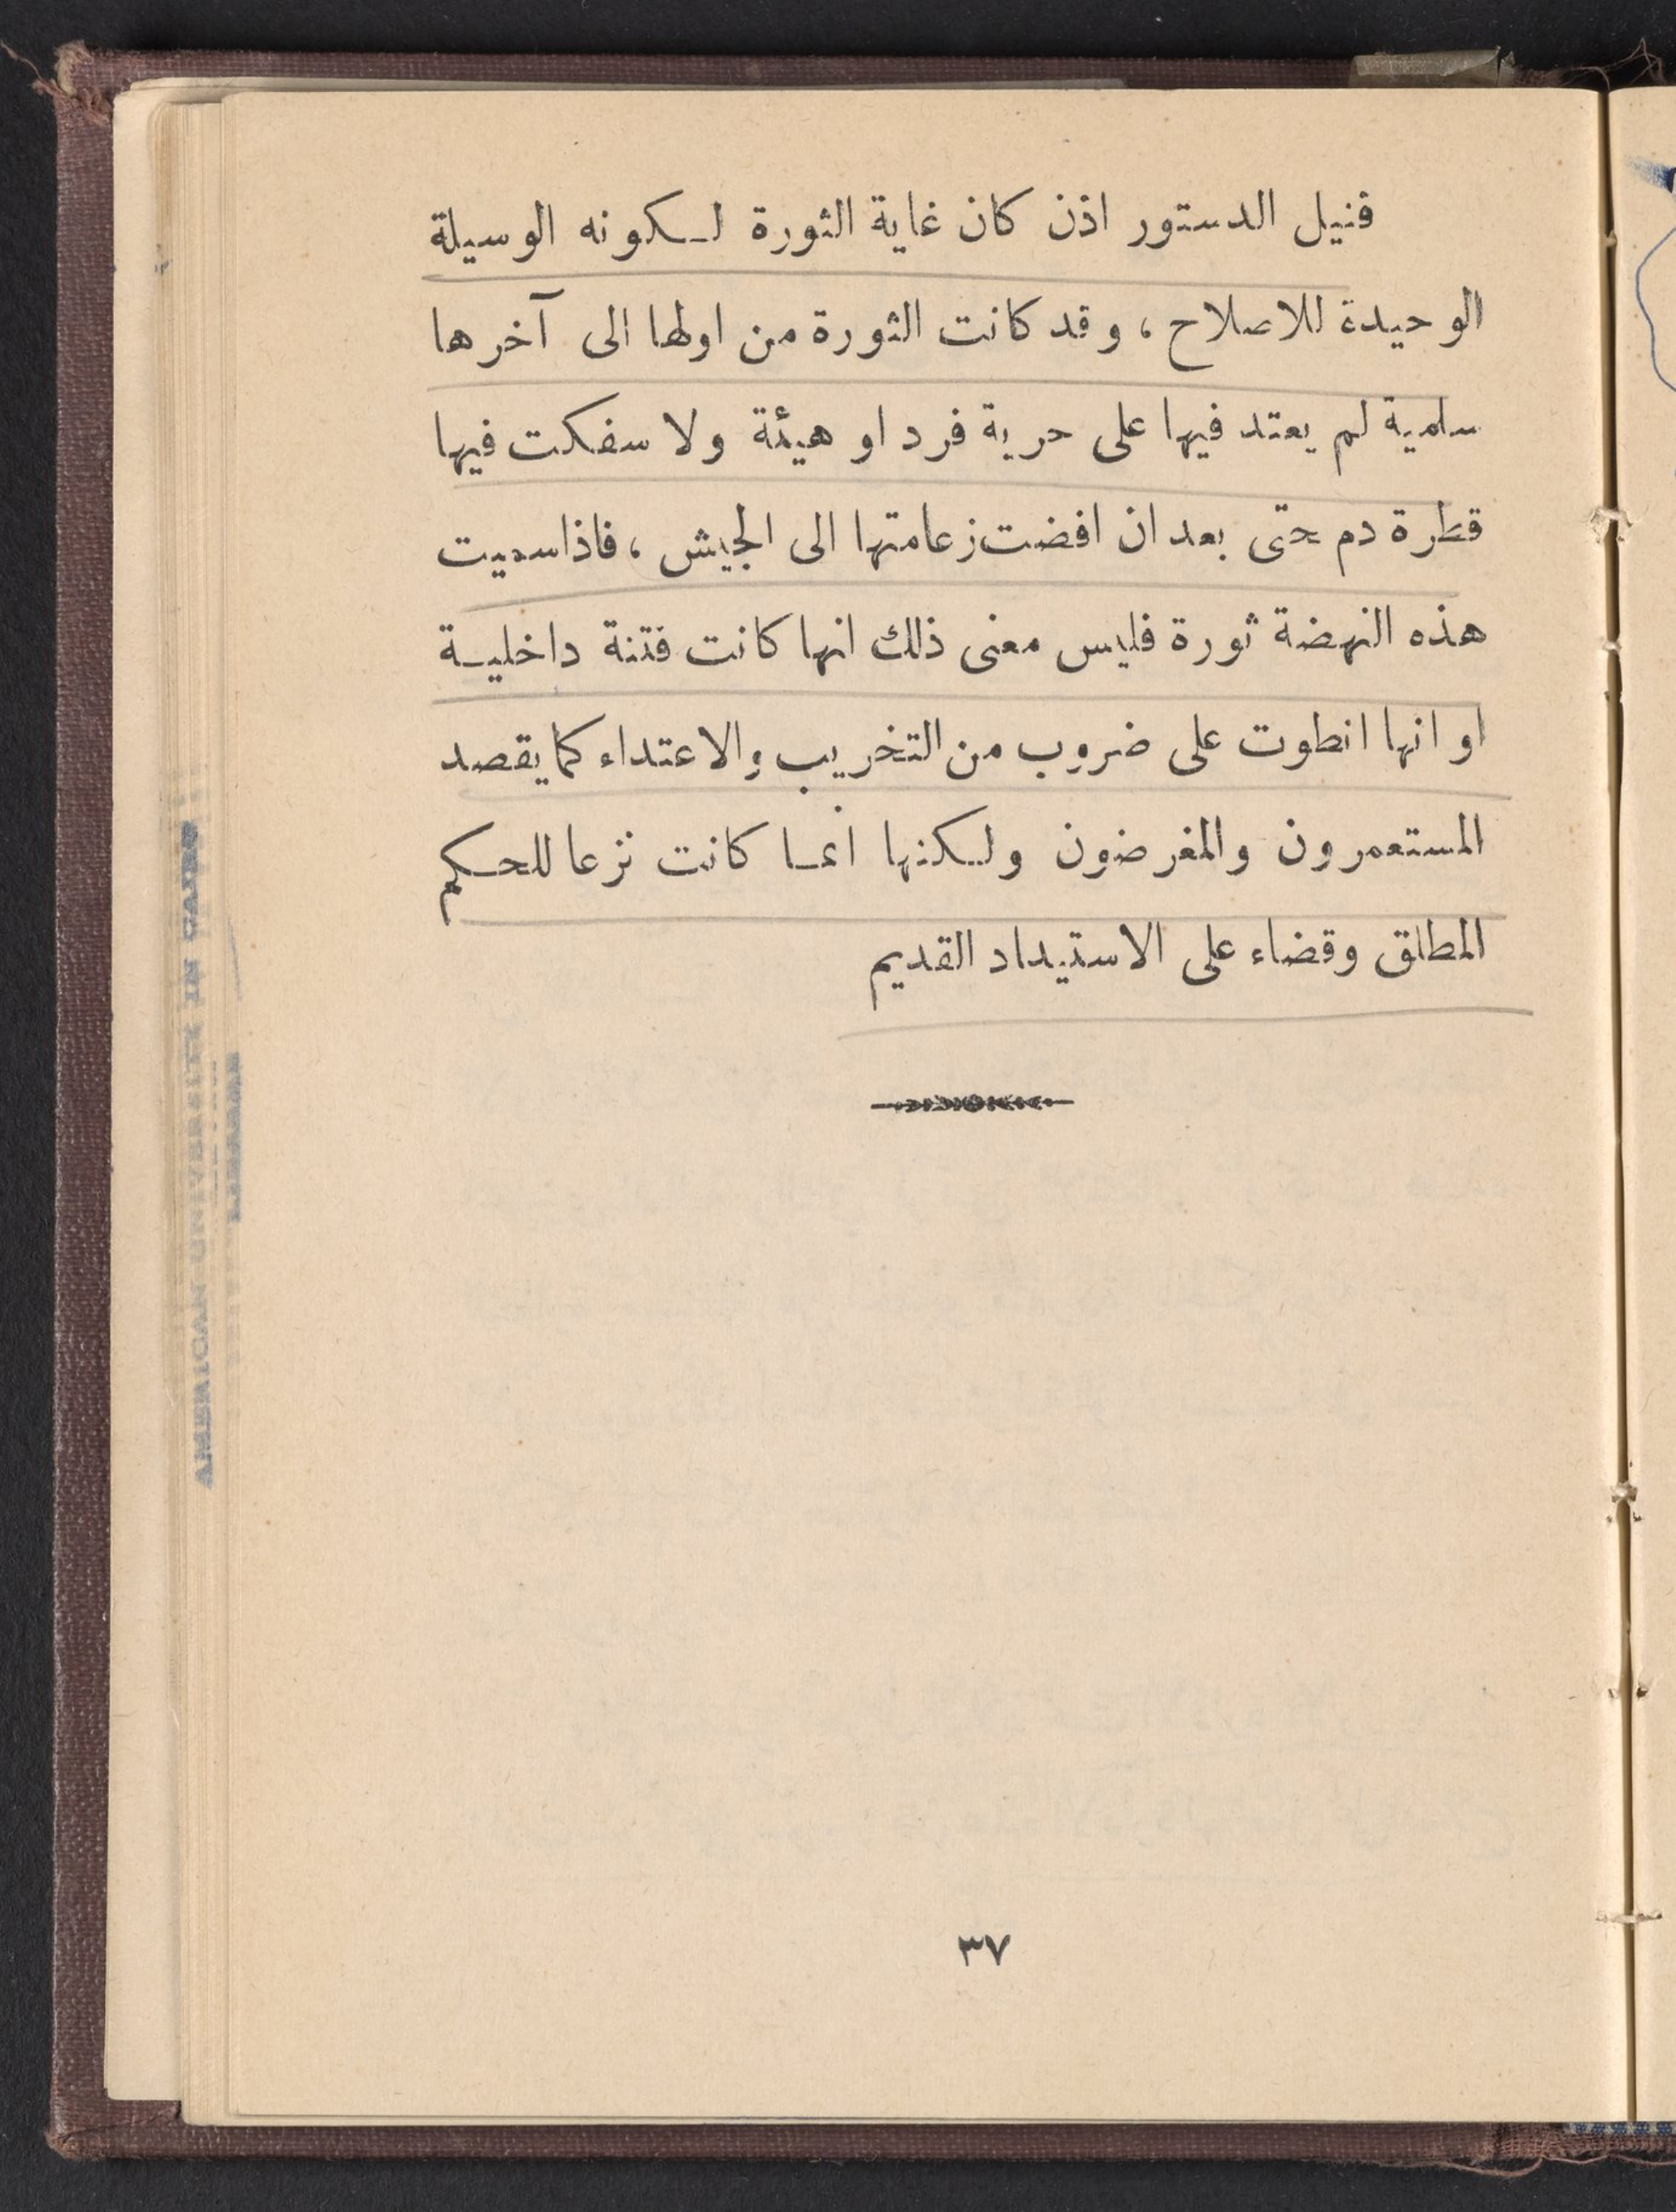 فنيل الدستور اذن كان غاية الثورة لـكونه الوسيلة
الوحيدة للاصلاح ، وقد كانت الثورة من اولها الى آخرها
سلمية لم يعتد فيها على حرية فرد او هيئة ولا سفكت فيها
قطرة دم حتى بعد ان افضت زعامتها الى الجيش ، فاذا سميت
هذه النهضة ثورة فليس معنى ذلك انها كانت فتنة داخليـة
او انها انطوت على ضروب من التخريب والاعتداء كما يقصد
المستعمرون والمغرضون ولـكنها انمـا كانت نزعا للحـكم
المطلق وقضاء على الاستبداد القديم
٣٧
AMERICAN UNIVERSITY IN CAIRO
LIBRARY